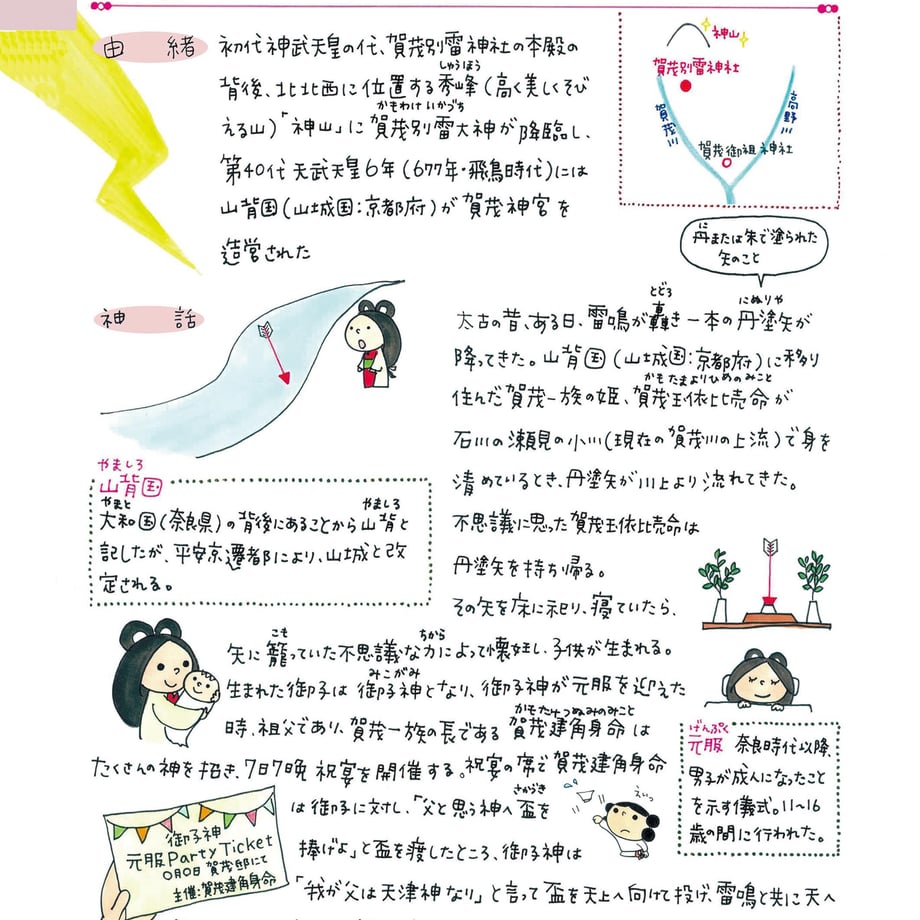 由緒
初代神武天皇の代、賀茂別雷神社の本殿の
しゅうほう
背後、北北西に位置する秀峰(高く美しくそび
かもわけいかづち
える山)「神山」に賀茂別雷大神が降臨し、
第40代天武天皇6年(677年・飛鳥時代)には
山背国(山城国:京都府)が賀茂神宮を
造営された
神山
賀茂別雷神社
賀茂川
高野川
賀茂御祖神社
に
丹または朱で塗られた
矢のこと
神話
とどろ
にぬりや
太古の昔、ある日、雷鳴が轟き一本の丹塗矢が
降ってきた。山背国(山城国:京都府)に移り
かもたまよりひめのみこと
住んだ賀茂一族の姫、賀茂玉依比売命が
石川の瀬見の小川(現在の賀茂川の上流)で身を
清めているとき、丹塗矢が川上より流れてきた。
不思議に思った賀茂玉依比売命は
丹塗矢を持ち帰る。
その矢を床に祀り、寝ていたら、
やましろ
山背国
やまと
やましろ
大和国(奈良県)の背後にあることから山背と
記したが、平安京遷都により、山城と改
定される。
こも
ちから
矢に籠っていた不思議な力によって懐妊し、子供が生まれる。
みこがみ
生まれた御子は御子神となり、御子神が元服を迎えた
かもたけつぬみのみこと
時、祖父であり、賀茂一族の長である賀茂建角身命は
たくさんの神を招き、7日7晩祝宴を開催する。祝宴の席で賀茂建角身命
さかづき
は御子に対し、「父と思う神へ盃を
捧げよ」と盃を渡したところ、御子神は
「我が父は天津神なり」と言って盃を天上へ向けて投げ、雷鳴と共に天へ
げんぷく
元服 奈良時代以降、
男子が成人になったこと
を示す儀式。11〜16
歳の間に行われた。
えいっ
御子神
元服Party Ticket
〇月〇日 賀茂邸にて
主催:賀茂建角身命